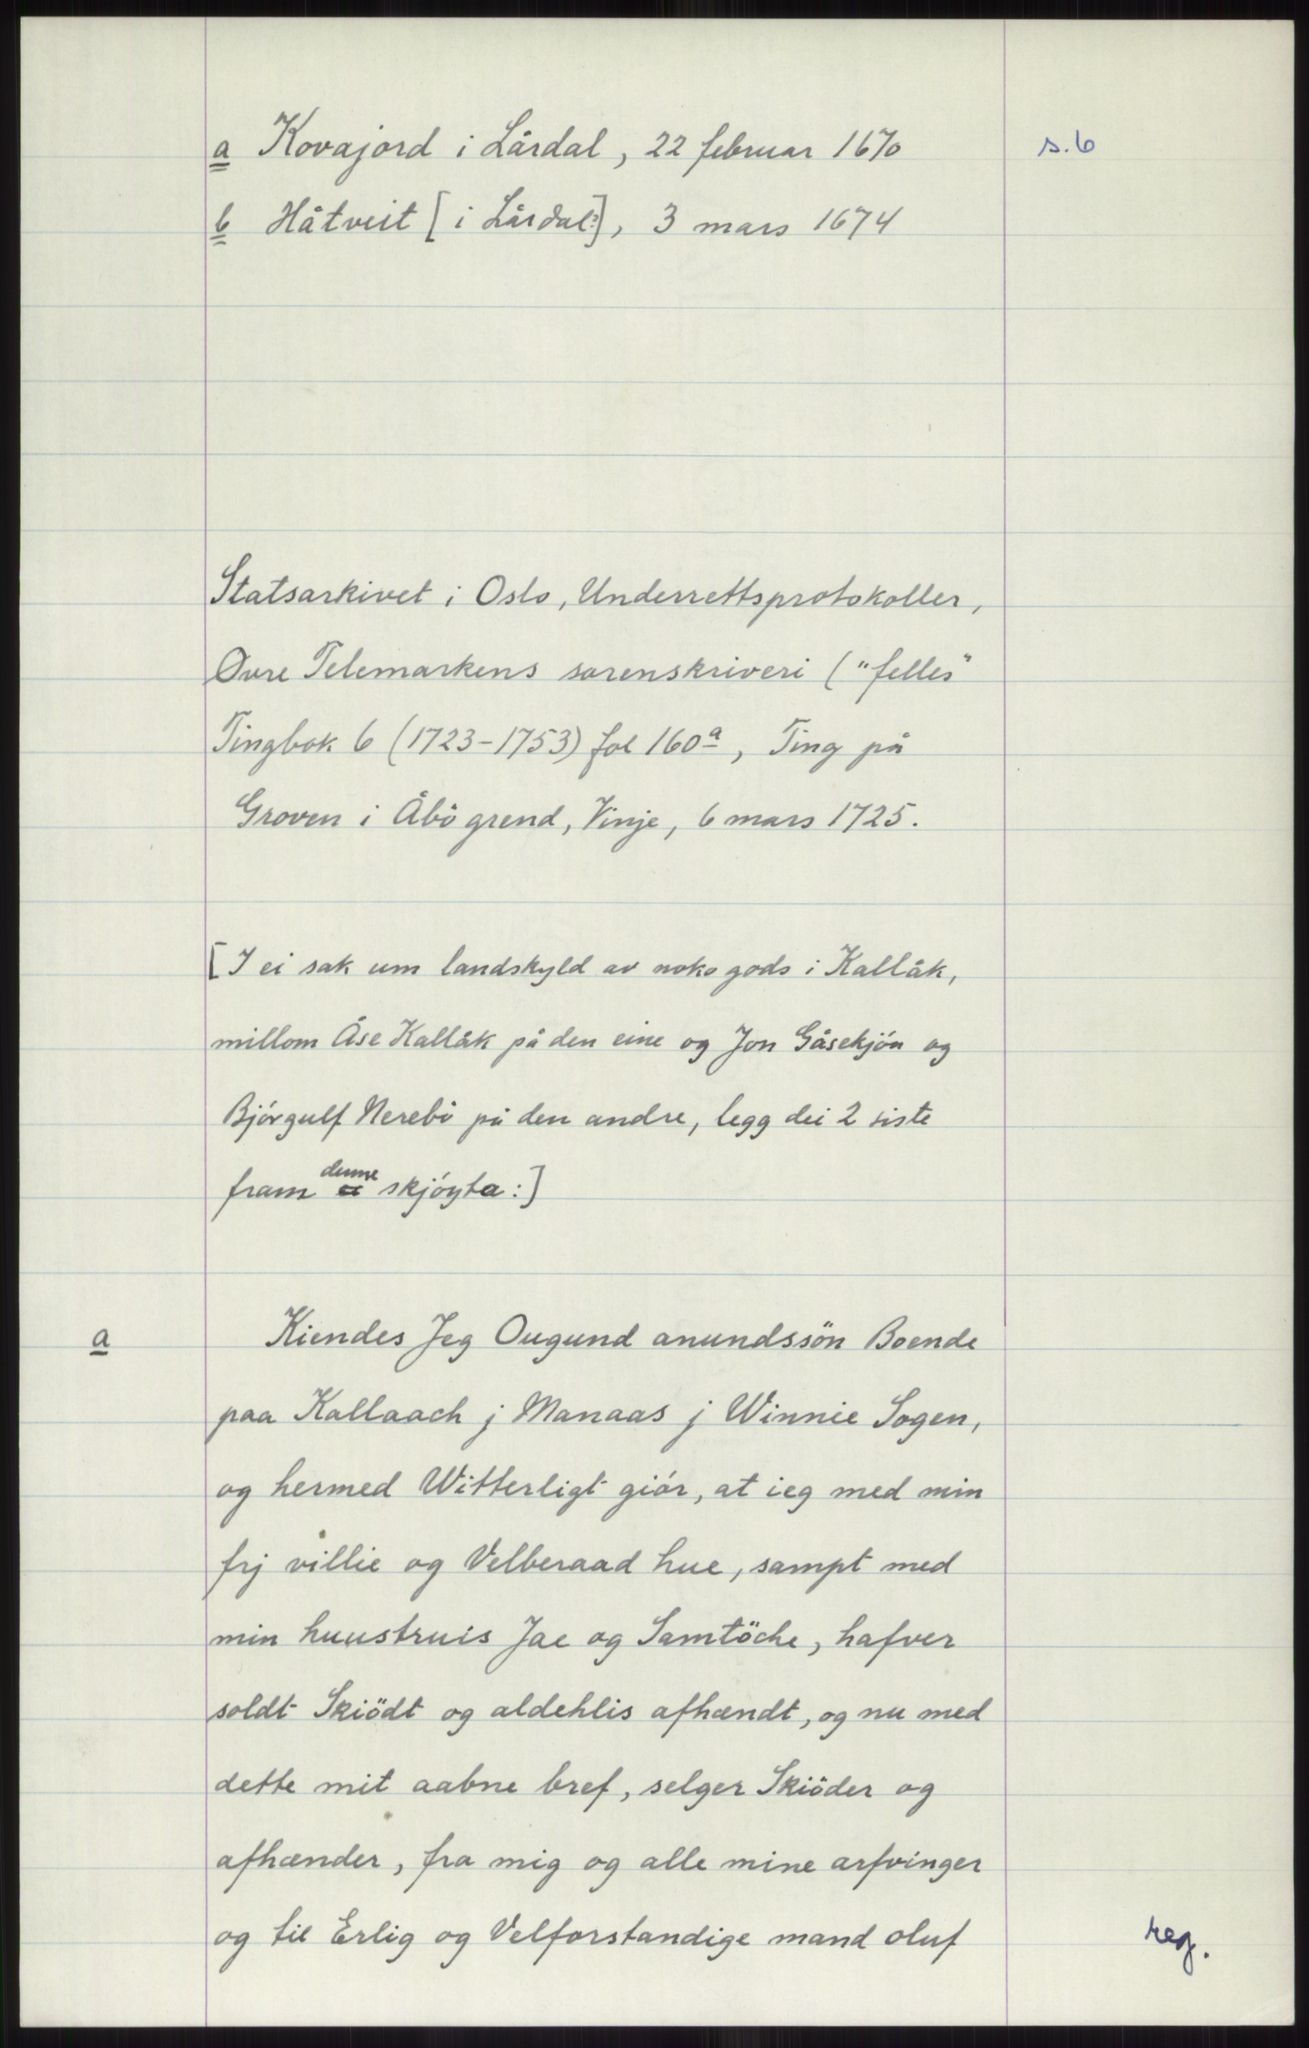 a Kovajord i Lårdal, 22 februar 1670 s.6
b Håtveit [i Lårdal:], 3 mars 1674
Statsarkivet i Oslo, Underrettsprotokoller,
Øvre Telemarkens sorenskriveri ("felles"
Tingbok 6 (1723-1753) fol 160a, Ting på
Groven i Åbö grend, Vinje, 6 mars 1725.
[I ei sak um landskyld av noko gods i Kallåk,
millom Åse Kallåk på den eine og Jon Gåsekjön og
Bjórgulf Nerebö på den andre, legg dei 2 siste
fram denne skjóyta:]
a Kiendes Jeg Ougund anundssön Boende
paa Kallaach j Manaas j Winnie Sogen,
og hermed Witterligt giór, at ieg med min
frj villie og Velberaad hue, sampt med
min huustruis Jae og Samtöche, hafver
soldt Skiödt og aldehlis afhændt, og nu med
dette mit aabne bref, selger Skiöder og
afhænder, fra mig og alle mine arfvinger
og til Erlig og Velforstandige mand oluf
reg.